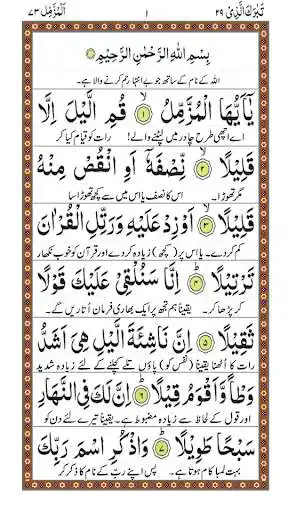 تَبٰرَكَ الَّذِیْ ۲۹ ۱ اَلْمُزَّمِّل ۷۳
بِسْمِ اللّٰهِ الرَّحْمٰنِ الرَّحِیْمِ
اللہ کے نام کے ساتھ جو بے انتہا رحم کرنے والا ہے۔
یٰۤاَیُّهَا الْمُزَّمِّلُ ۱ قُمِ الَّیْلَ اِلَّا
اے اچھی طرح چادر میں لپٹنے والے! رات کو قیام کیا کر
قَلِیْلًا ۲ نِّصْفَهٗۤ اَوِ انْقُصْ مِنْهُ
مگر تھوڑا۔ اس کا نصف یا اس میں سے کچھ تھوڑا سا
قَلِیْلًا ۳ اَوْ زِدْ عَلَیْهِ وَ رَتِّلِ الْقُرْاٰنَ
کم کر دے۔ یا اس پر (کچھ) زیادہ کر دے اور قرآن کو خوب نکھار
تَرْتِیْلًا ۴ اِنَّا سَنُلْقِیْ عَلَیْكَ قَوْلًا
کر پڑھا کر۔ یقیناً ہم تجھ پر ایک بھاری فرمان اُتاریں گے۔
ثَقِیْلًا ۵ اِنَّ نَاشِئَةَ الَّیْلِ هِیَ اَشَدُّ
رات کا اُٹھنا یقیناً (نفس کو) پاؤں تلے کچلنے کے لئے زیادہ شدید
وَطْاً وَّ اَقْوَمُ قِیْلًا ۶ اِنَّ لَكَ فِی النَّهَارِ
اور قول کے لحاظ سے زیادہ مضبوط ہے۔ یقیناً تیرے لئے دن کو
سَبْحًا طَوِیْلًا ۷ وَ اذْكُرِ اسْمَ رَبِّكَ
بہت لمبا کام ہوتا ہے۔ پس اپنے ربّ کے نام کا ذکر کر